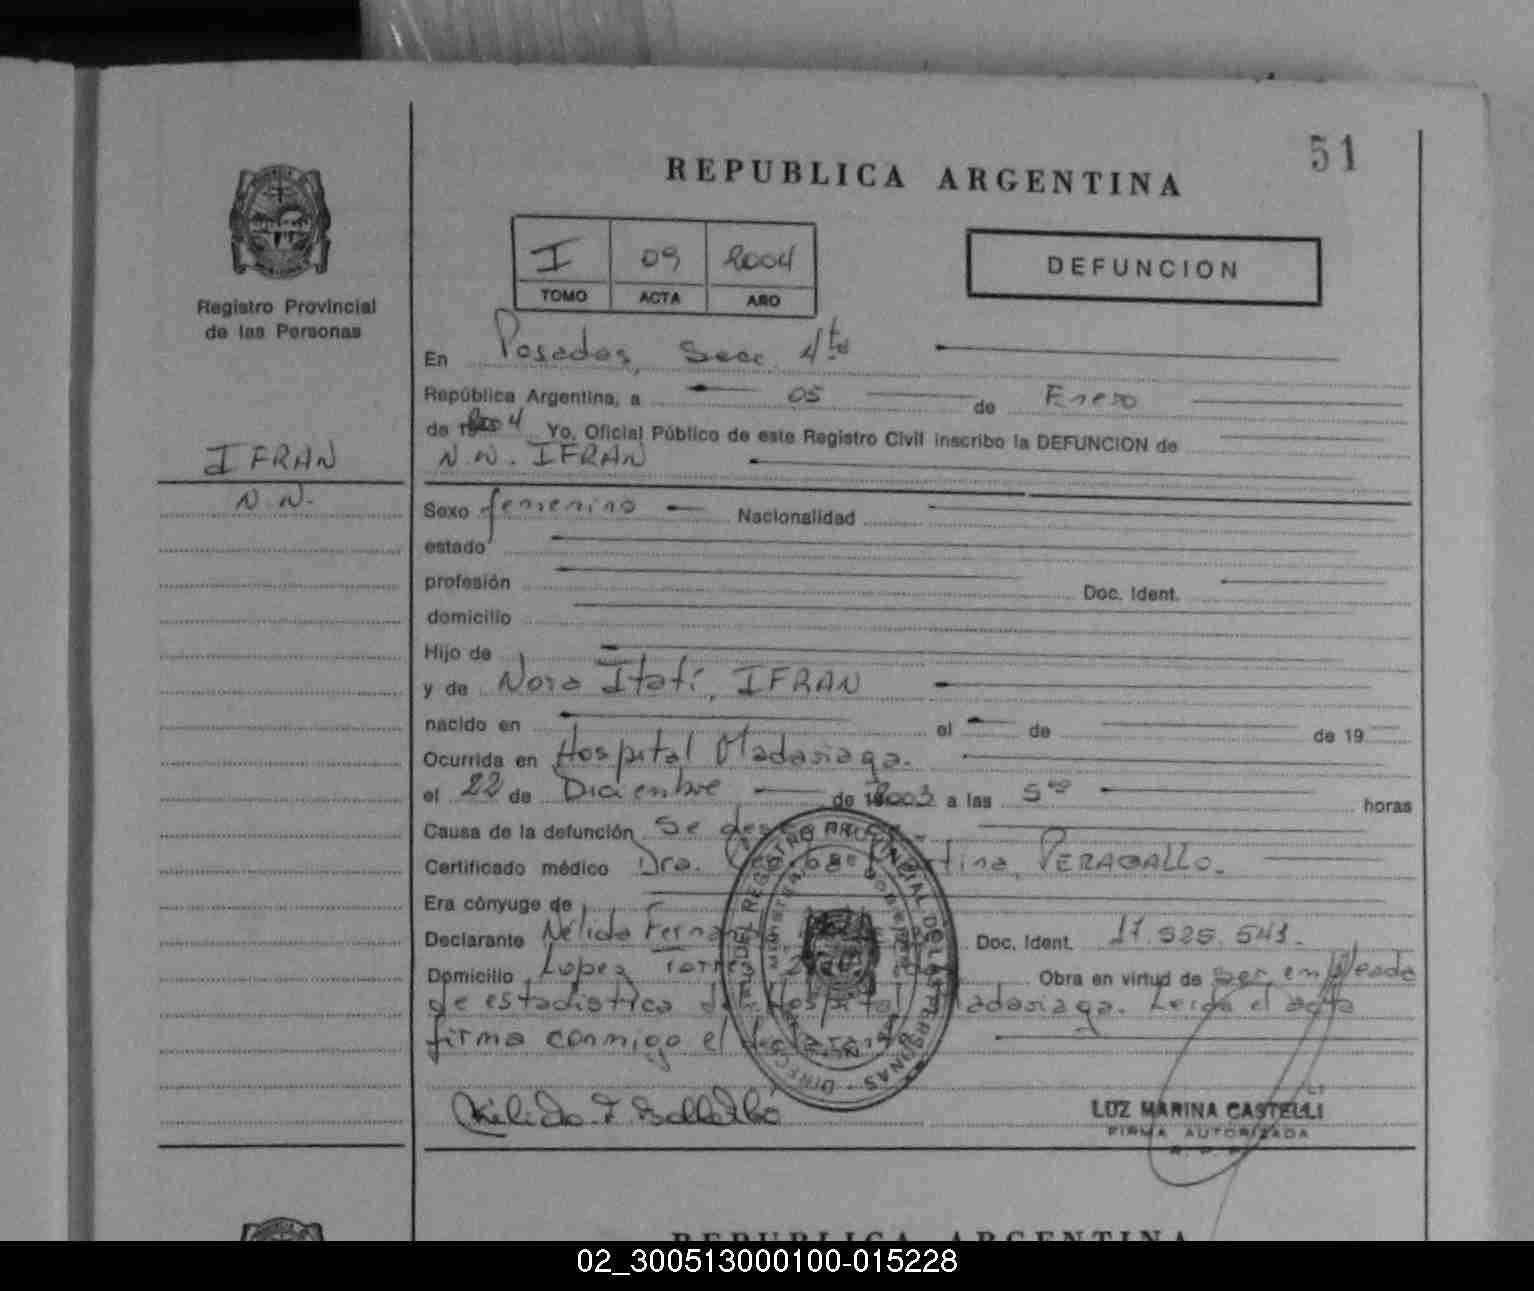 51
REPUBLICA ARGENTINA
I 09 2004
TOMO ACTA AÑO
DEFUNCION
Registro Provincial
de las Personas
IFRAN
N.N.
En Posadas, Secc. 4ta
República Argentina, a 05 de Enero
de 2004 Yo, Oficial Público de este Registro Civil inscribo la DEFUNCION de
N.N. IFRAN
Sexo femenino Nacionalidad
estado
profesión Doc. Ident.
domicilio
Hijo de
y de Nora Itatí, IFRAN
nacido en el de de 19
Ocurrida en Hospital Madariaga.
el 22 de Diciembre de 2003 a las 5 horas
Causa de la defunción Se
Certificado médico Dra. PERAGALLO.
Era cónyuge de
Declarante Nélida Doc. Ident. 17.525.541.
Domicilio Lopez Torres Obra en virtud de ser empleada
de estadistica del Hospital Madariaga. Leida el acta
firma conmigo el
DEL REGISTRO PROVINCIAL DE LAS PERSONAS
LUZ MARINA CASTELLI
FIRMA AUTORIZADA
REPUBLICA ARGENTINA
02_300513000100-015228